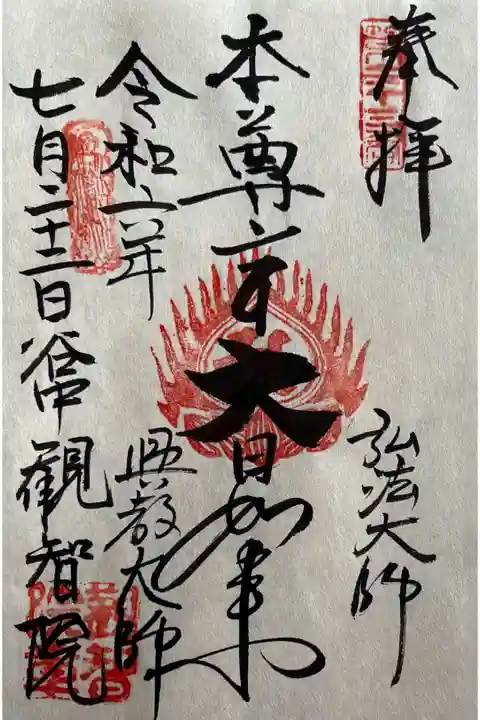 奉拝
弘法大師
本尊
大日如来
興教大師
令和六年
七月二十二日 谷中 観智院